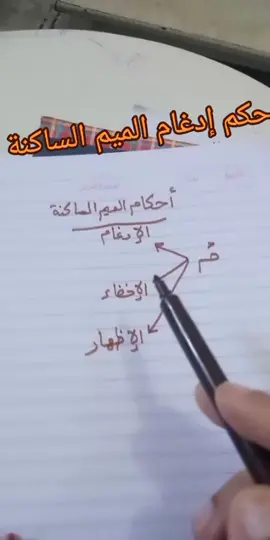 حكم إدغام الميم الساكنة
أحكام الميم الساكنة
الإدغام
مْ
الإخفاء
الإظهار